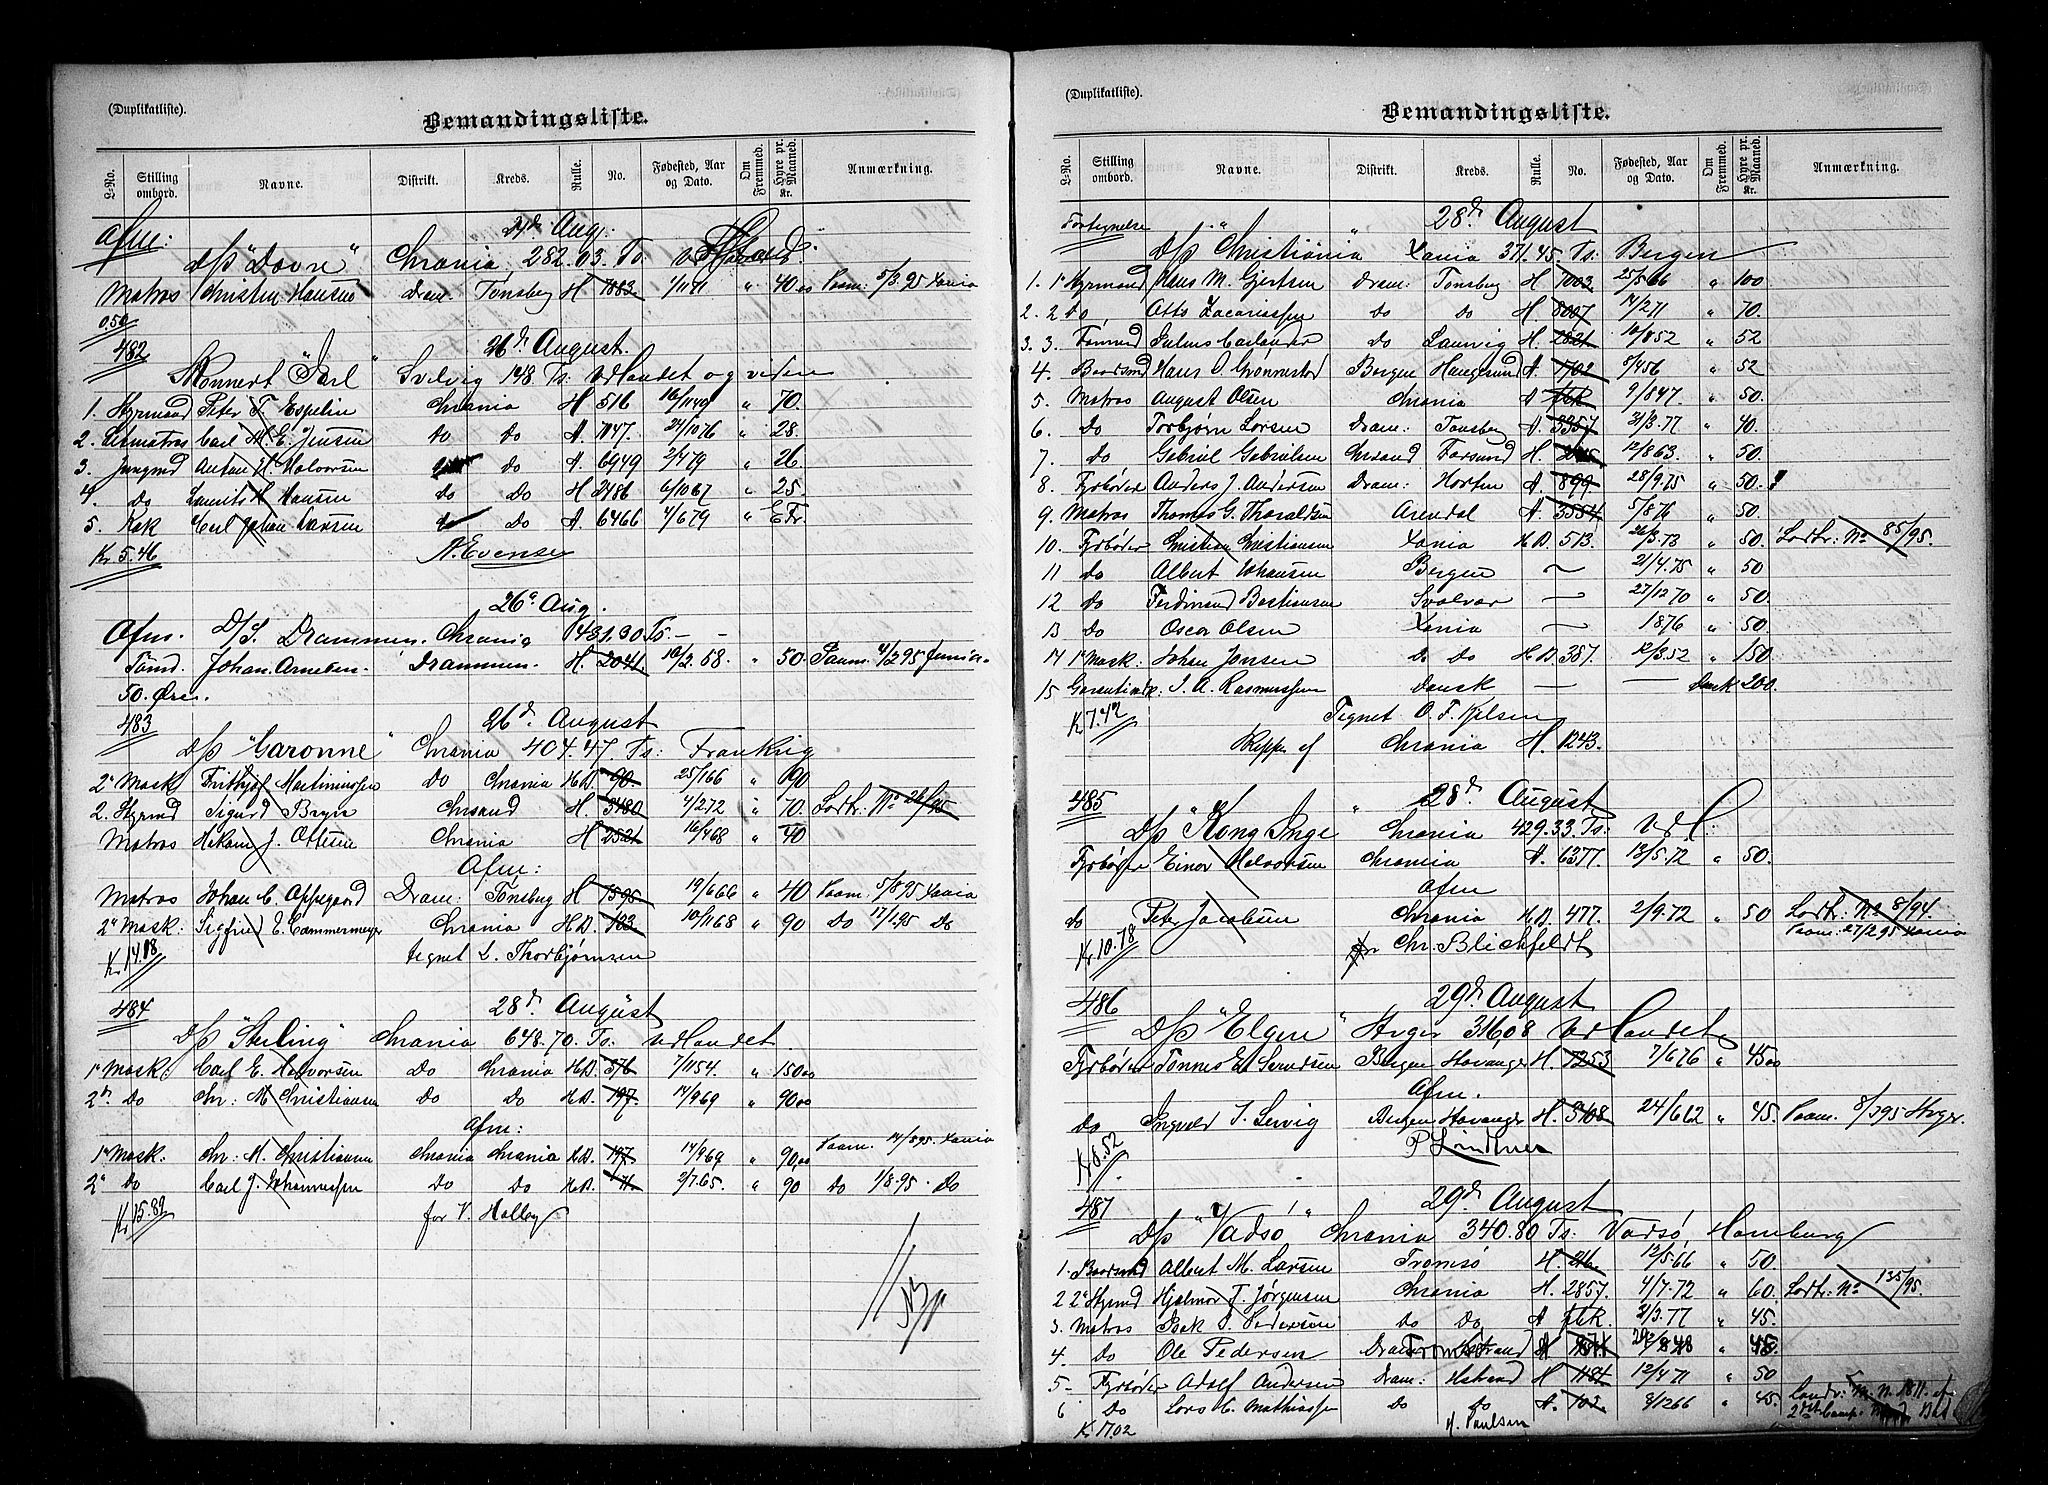 (Duplikatliste).
Bemandingsliste.
L-No. Stilling ombord. Navne. Distrikt. Kreds. Rulle. No. Fødested, Aar og Dato. Om Fremmed. Hyre pr. Maaned. Kr. Anmærkning.
Afm: Aug:
D/S "Dovre" Chrania 282.03. Ts.
Matros Christen Hansen Dram. Tønsberg H 1883 40.00 Paam. 5/3.95 Xania
0.50
482 26de August.
Skonnert "Carl" Svelvig 148 Ts: Udlandet og videre
1. Styrmand Peter F. Espelin Chrania H 516 16/1140 " 70.
2. Letmatros Carl M. E. Jensen Do Do A. 1147. 24/1076 " 28.
3. Jungmd Anton H. Halvorsen Do A. 6949 2/479 " 26.
4. Do Laurits H. Hansen Do Do H 2486 6/1067 " 25.
5. Kok Carl Johan Larsen Do A. 6466 4/679 "
Kr. 5.46 N. Evensen
26de Aug.
Afm. D/S. Drammen. Chrania 431.30 Ts. - -
Tømd. Johan Arnesen. Drammen. H. 2041 10/2.58. " 50.
50. Øre.
483 26de August
D/S "Garonne" Chrania 404.47 Ts: Frankrig
2n Mask Frithjof Martiniussen Do Chrania HD. 90. 25/166 " 190
2. Styrmd Sigurd Bryn Chrsand H. 3480 4/2.72 " 70. Lodtr. No 26/95
Matros Hakon J. Ottesen Chrania H 2521 16/468 " 40
Afm:
Matros Johan C. Appegaard Dram: Tønsberg H 1595 19/666 " 40 Paam. 5/8 95 Xania
2n Mask: Sigfried E. Cammermeyer Chrania HD. 123. 10/1168 " 90 Do 17/1.95 Do
Kr. 14.18 tegnet L. Thorbjørnsen
484 28de August
D/S "Sterling" Chrania 648.70. Ts. Udlandet.
1n Mask: Carl E. Halvorsen Do Chrania HD. 376 7/1154. " 150.00
2n Do Chr: M. Christiansen Do Do HD. 197. 14/969 " 90.00
Afm:
1n Mask. Chr: M. Christiansen Chrania Chrania HD. 197. 14/969 " 90,00 Paam. 14/895. Xania
2n Do Carl J. Johannessen Do Do HD. 2/7.65. " 90 Do 1/8.95. Do
Kr. 15.82 for V. Halley
(Duplikatliste).
Bemandingsliste.
L-No. Stilling ombord. Navne. Distrikt. Kreds. Rulle. No. Fødested, Aar og Dato. Om Fremmed. Hyre pr. Maaned. Kr. Anmærkning.
Fortegnelse 28de August
D/S "Christiania" Xania 371.45. Ts: Bergen
1. 1n Styrmand Hans M. Gjertsen Dram: Tønsberg H 1003. 25/566 " 100
2. 2 Do, Otto Zacariassen do do H 8007 14/271 " 70.
3. 3. Tømmd Julius Carlander do Laurvig H. 2821 10/852 " 52
4. Baadsmd Hans O. Grønnestad Bergen Haugesund A. 1702 5/956 " 52
5. Matros August Olsen Chrania A 9/847. " 50.
6. Do Torbjørn Larsen Dram: Tønsberg A. 3357 31/3.77 " 40.
7. do Gabriel Gabrielsen Chrsand Farsund H 12/863. " 50.
8. Fyrbøder Anders J. Andersen Dram: Horten A. 899 28/9.75 " 50.
9. Matros Thomas G. Tharaldsen Arendal A. 3554 5/876 " 50.
10. Fyrbøder Christian Christiansen Xania HD. 513. 26/3.73 " 50. Lodtr: No 85/95.
11 do Albert Johansen Bergen 21/4.75 " 50
12 do Ferdinand Bastiansen Svolvær 27/12 70 " 50.
13 Do Oscar Olsen Xania 1876 " 50.
14 1n Mask: Johan Jensen Do Do HD. 387. 12/3.52 " 150
15 Garantimask: J. A. Rasmussen Dansk Dansk 200.
K 7.42 Tegnet O. F. Kjelsen
Chrania H. 1243.
485 28de August
D/S "Kong Inge" Chrania 429.33. Ts: Udl:
Fyrbøder Einar Halvorsen Chrania A. 6377. 13/5.72 " 50.
Afm
do Peter Jacobsen Chrania HD. 477. 2/9.72 " 50 Lodtr: No 8/94. Paam: 27/2.95 Xania
Kr. 10.78 Chr. Blichfeldt
486 29de August
D/S "Elgen" Stvgr 316.08 Udlandet
Fyrbøder Tønnes E. Svendsen Bergen Stavanger H. 1253 7/676 " 45.00
Afm.
Do Ingvald T. Lervig Bergen Stavanger H. 3108 24/662 " 45. Paam. Stvgr.
Kr. 8.52 P Lindtner
487 29de August
D/S "Vadsø" Chrania 340.80 Ts: Vadsø, Hamburg
1. Baadsmd Albert M. Larsen Tromsø H. 216. 12/5.66 " 50.
2 2n Styrmd Hjalmar F. Jørgensen Chrania H. 2857. 4/7.72 " 60. Lodtr: No 135/95.
3. Matros Isak P. Pedersen Do Do A 31/3.77 " 45.
4. Do Ole Pedersen " 45
5- Fyrbøder Adolf Andersen Dram: Hstrand H 1184 12/4 71 " 50
6 Do Lars C. Mathiassen Do do A. 702. 8/1266 " 45.
Kr 17.02 H. Paulsen